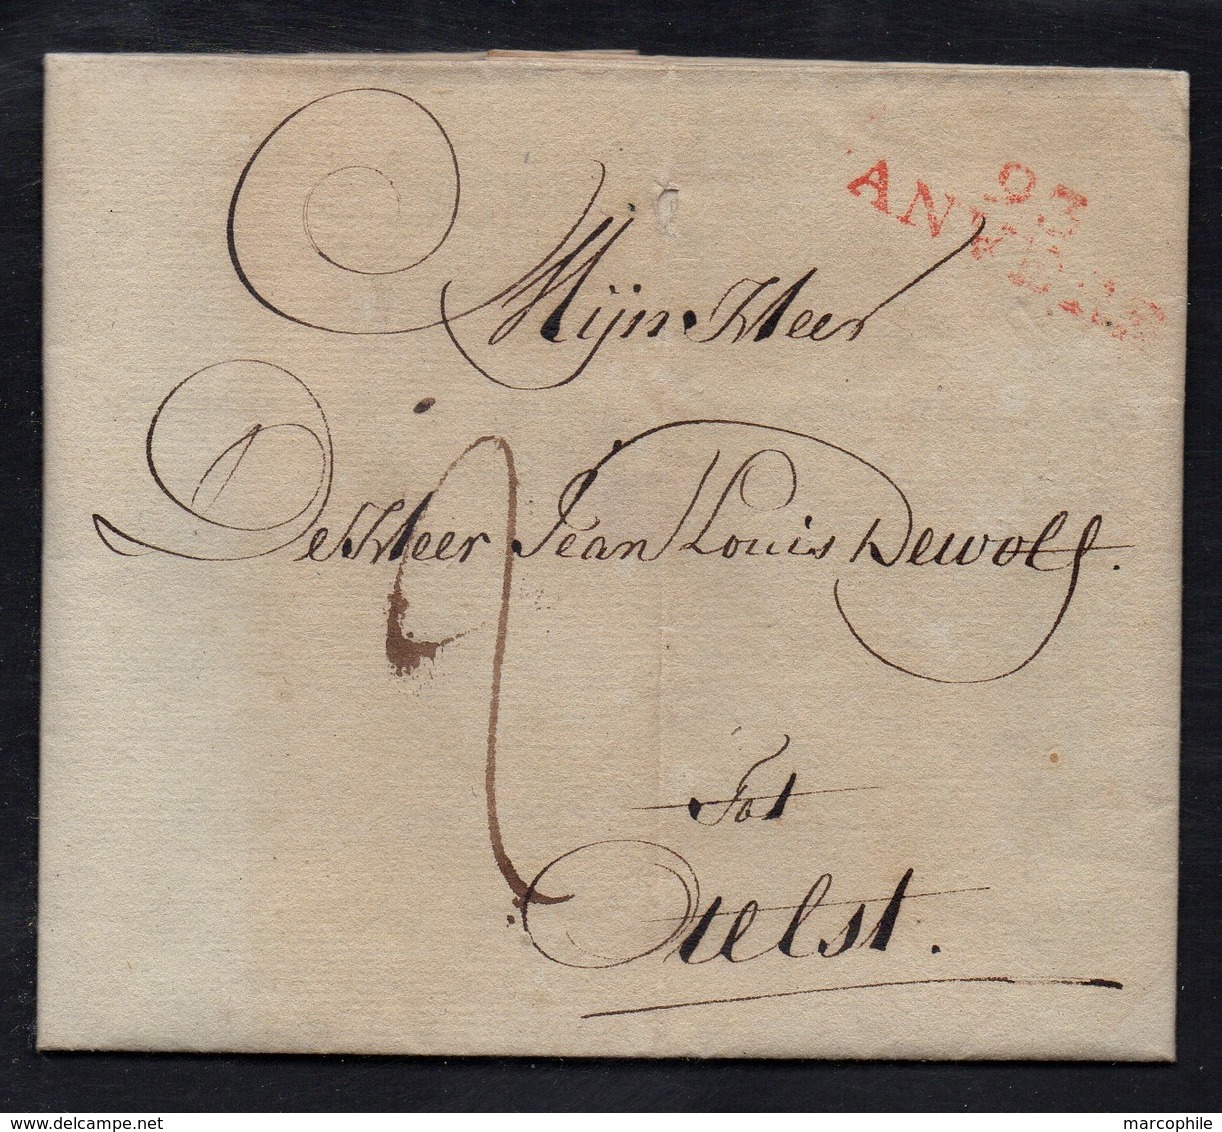 93
ANVERS
Mijn Heer
De Heer Jean Louis Dewolf.
Tot
Aelst.
delcampe.net
marcophile